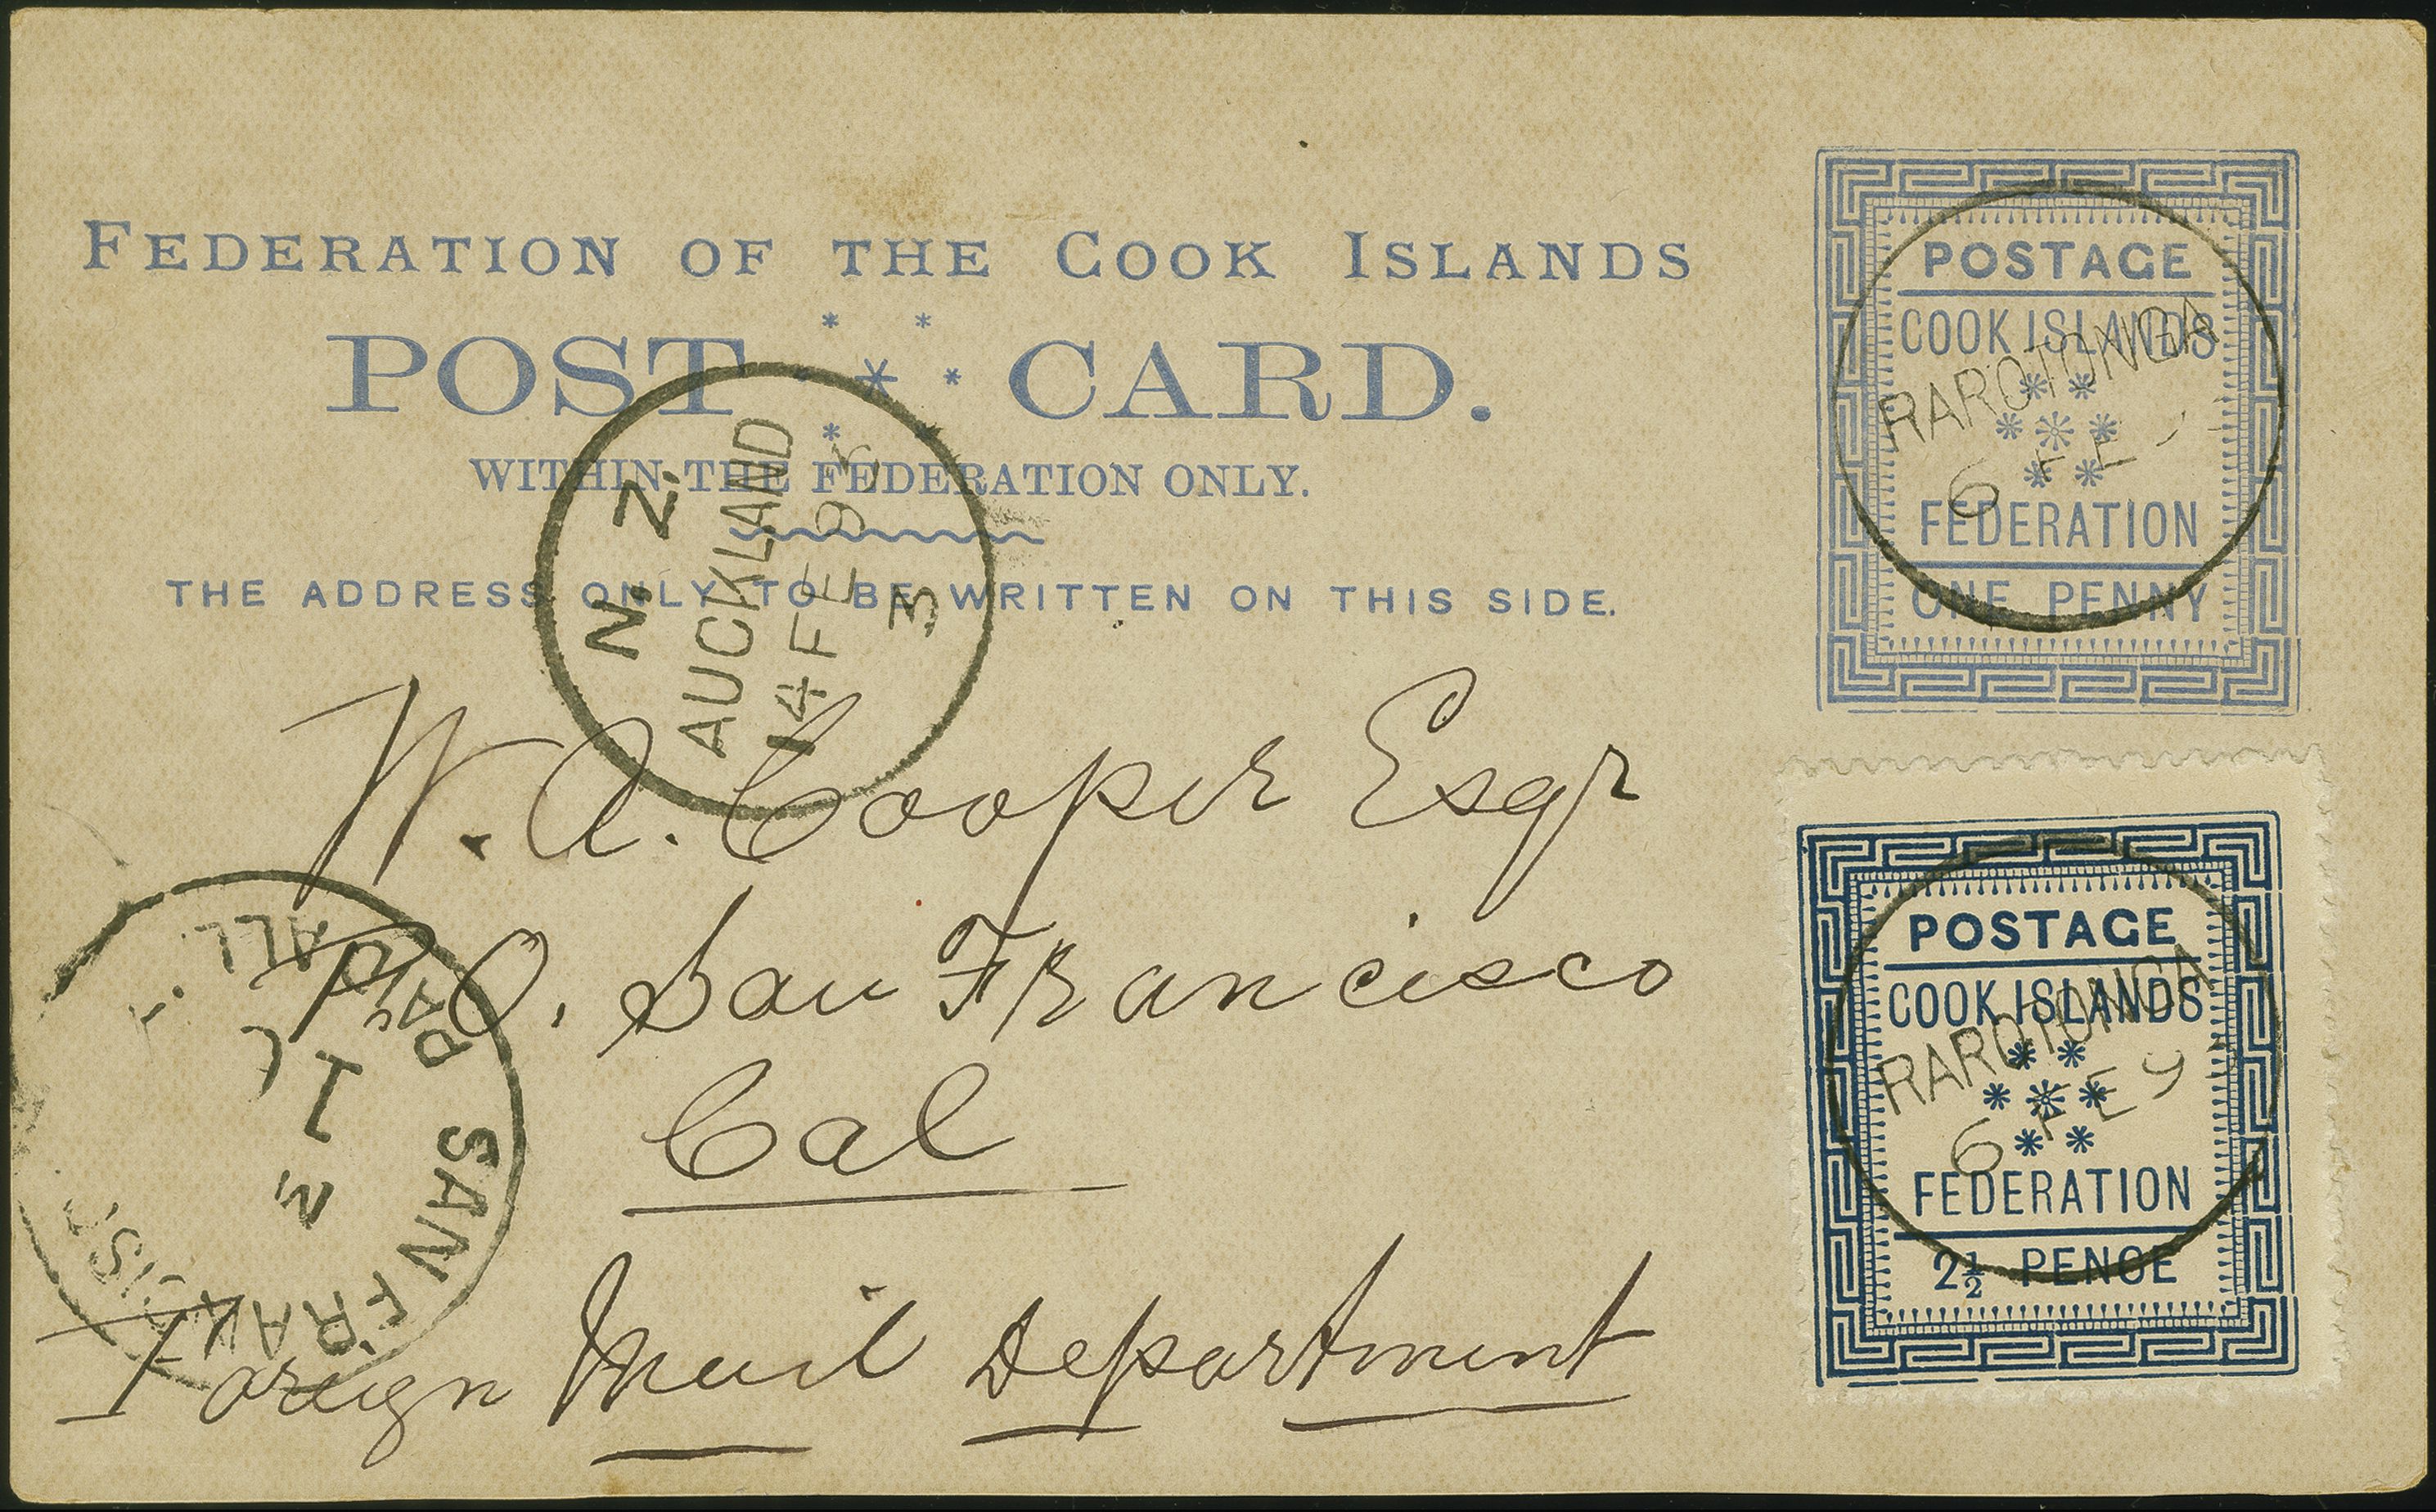 FEDERATION OF THE COOK ISLANDS
POST CARD.
WITHIN THE FEDERATION ONLY.
THE ADDRESS ONLY TO BE WRITTEN ON THIS SIDE.
POSTAGE
COOK ISLANDS
FEDERATION
ONE PENNY
RAROTONGA
6 FE
N. Z.
AUCKLAND
14 FE 93
3
W. A. Cooper Esqr
P. O. San Francisco
Cal
Foreign Mail Department
POSTAGE
COOK ISLANDS
FEDERATION
2½ PENCE
RAROTONGA
6 FE 9
SAN FRANCISC
PAID
ALL